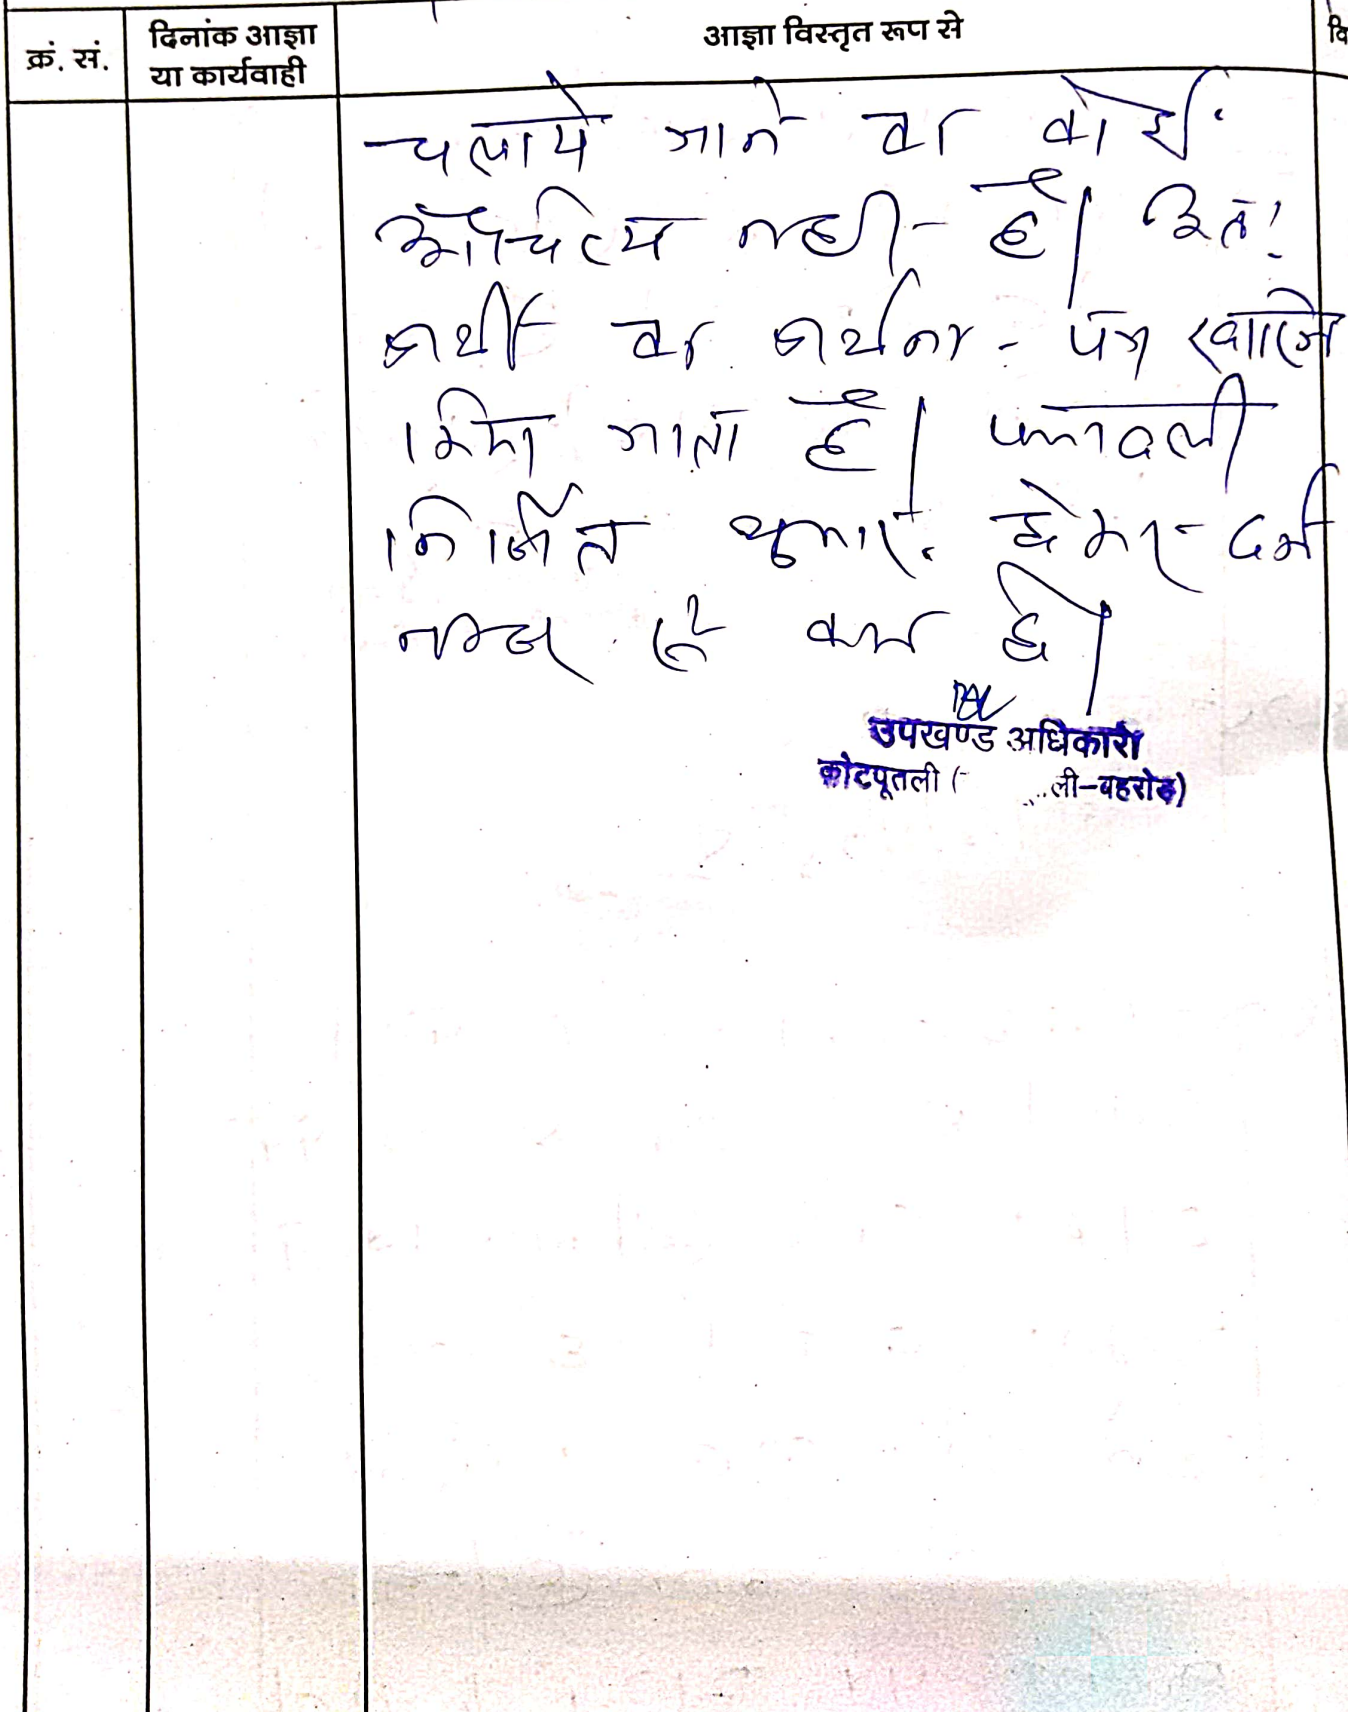 क्रं. सं.
दिनांक आज्ञा
या कार्यवाही
आज्ञा विस्तृत रूप से
वि
चलाये जाने का कोई
औचित्य नहीं है। अतः
प्रार्थी का प्रार्थना-पत्र खारिज
किया जाता है। पत्रावली
निर्णित शुमार होकर दर्ज
नम्बर से कम हो।
उपखण्ड अधिकारी
कोटपूतली ( ली-बहरोड़)